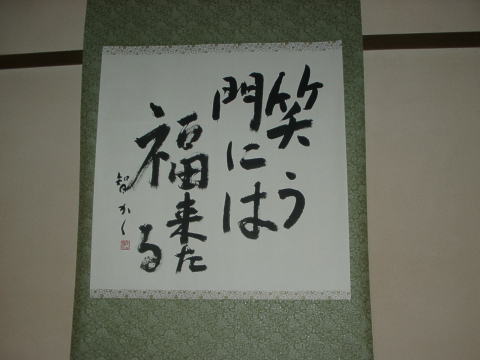 笑う
門には
福来たる
智かく